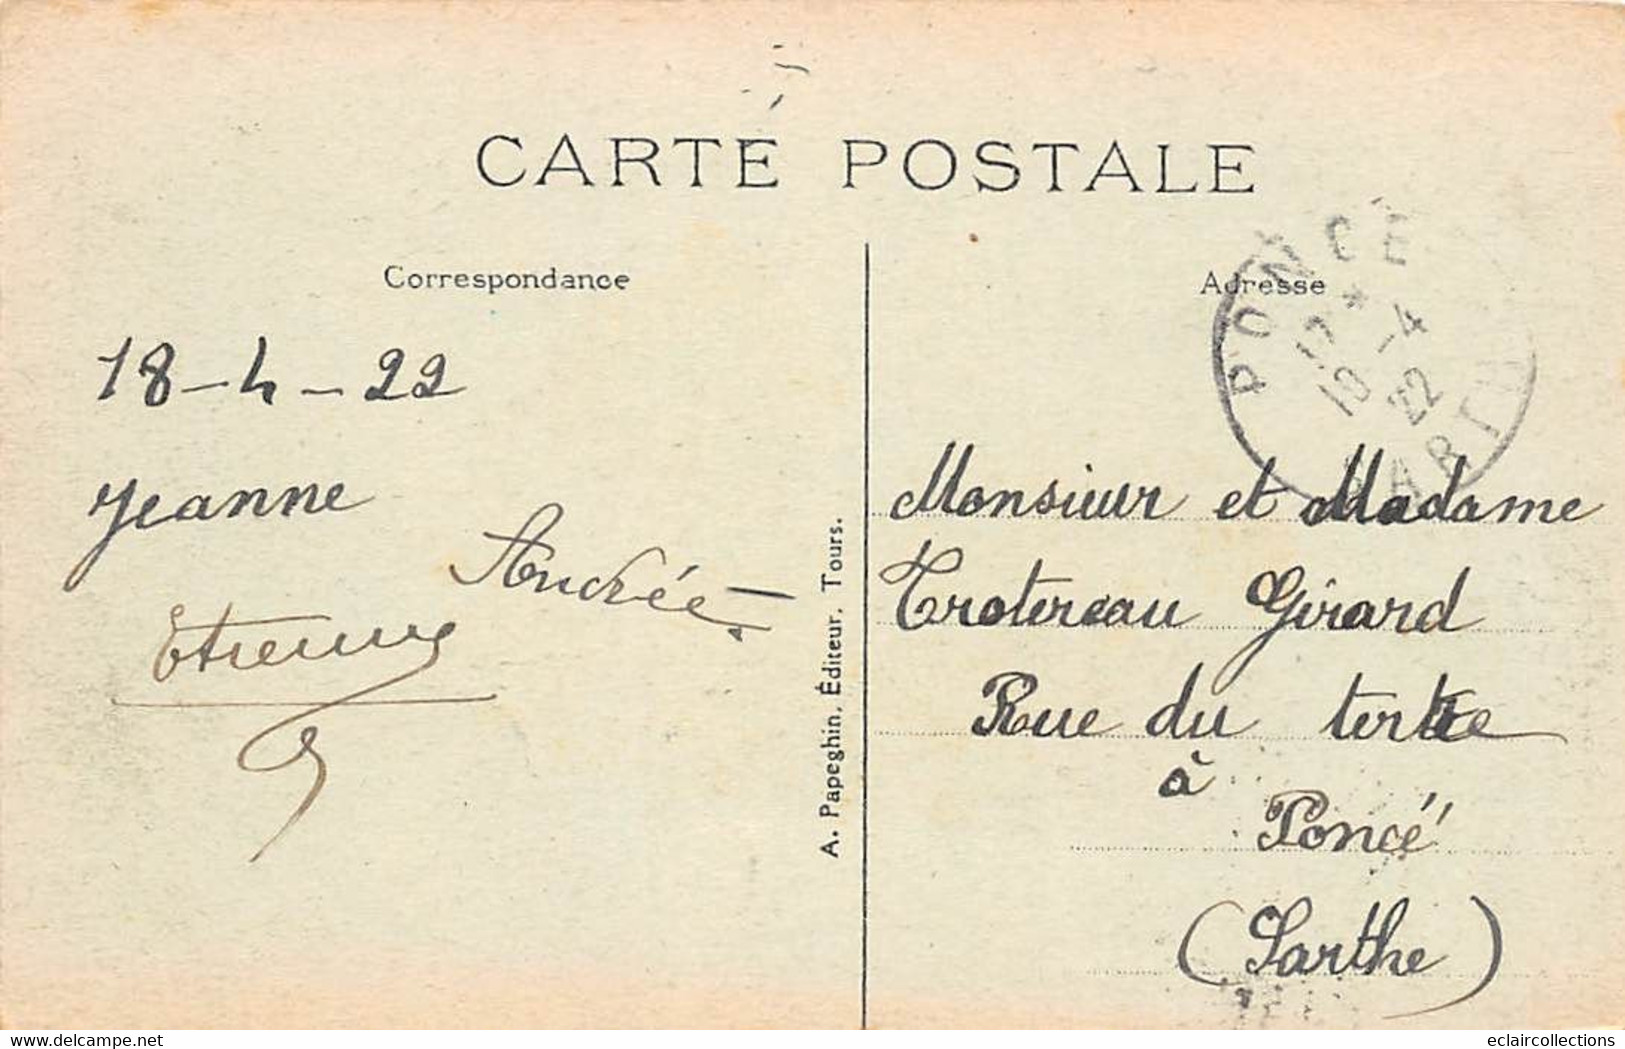 CARTE POSTALE
Correspondance
18-4-22
Jeanne
Andrée
Etienne
A. Papeghin, Éditeur, Tours.
Adresse
PONCÉ
* 
-4
22
SARTHE
Monsieur et Madame
Trotereau Girard
Rue du tertre
à
Poncé
(Sarthe)
delcampe.net
eclaircollections